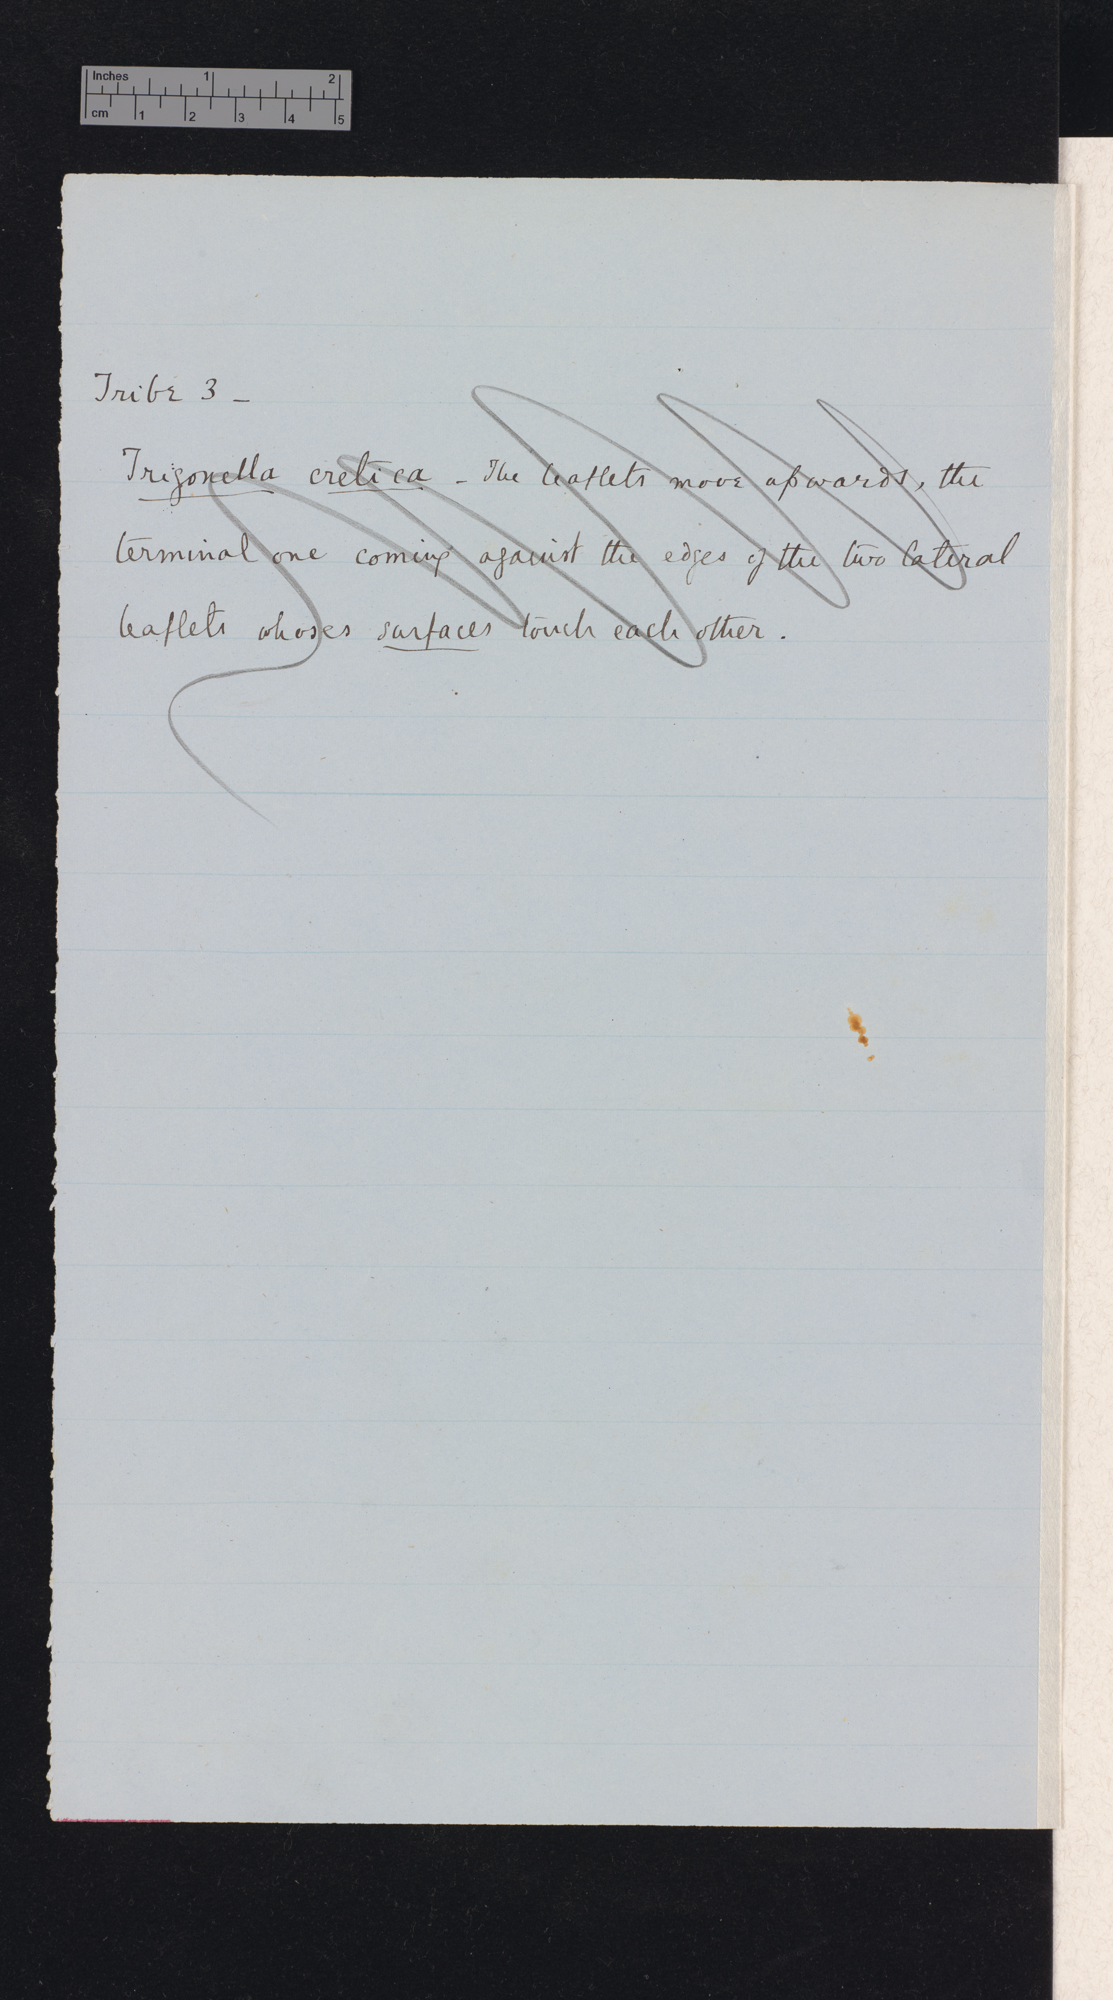 Inches 1 2
cm 1 2 3 4 5
Tribe 3 -
Trigonella cretica - The leaflets move upwards, the
terminal one coming against the edges of the two lateral
leaflets whoses surfaces touch each other.